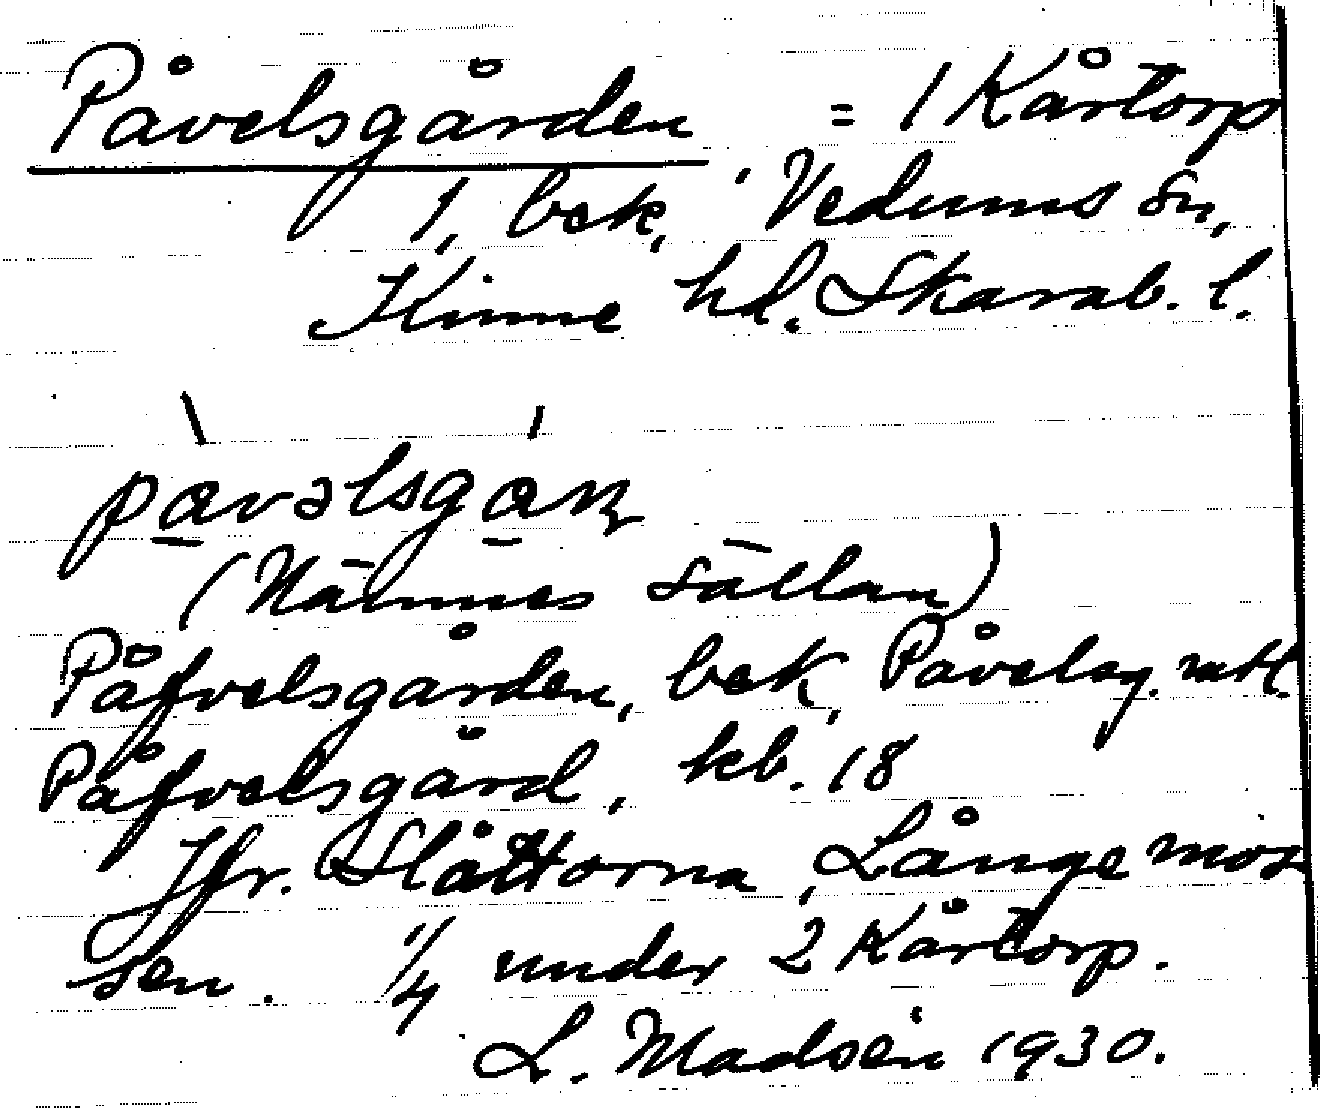 Påvelsgården = 1 Kårtorp
1, bek, i Vedums sn,
Kinne hd. Skarab. l.
pa̲vəlsga̲ɳ
(Nämnes sällan)
Påfvelsgården, bek, Påvelsg. mtl.
Påfvelsgård, kb. 18
Jfr. Slåttorna, Långemos-
sen. 1/4 under 2 Kårtorp.
L. Madsén 1930.